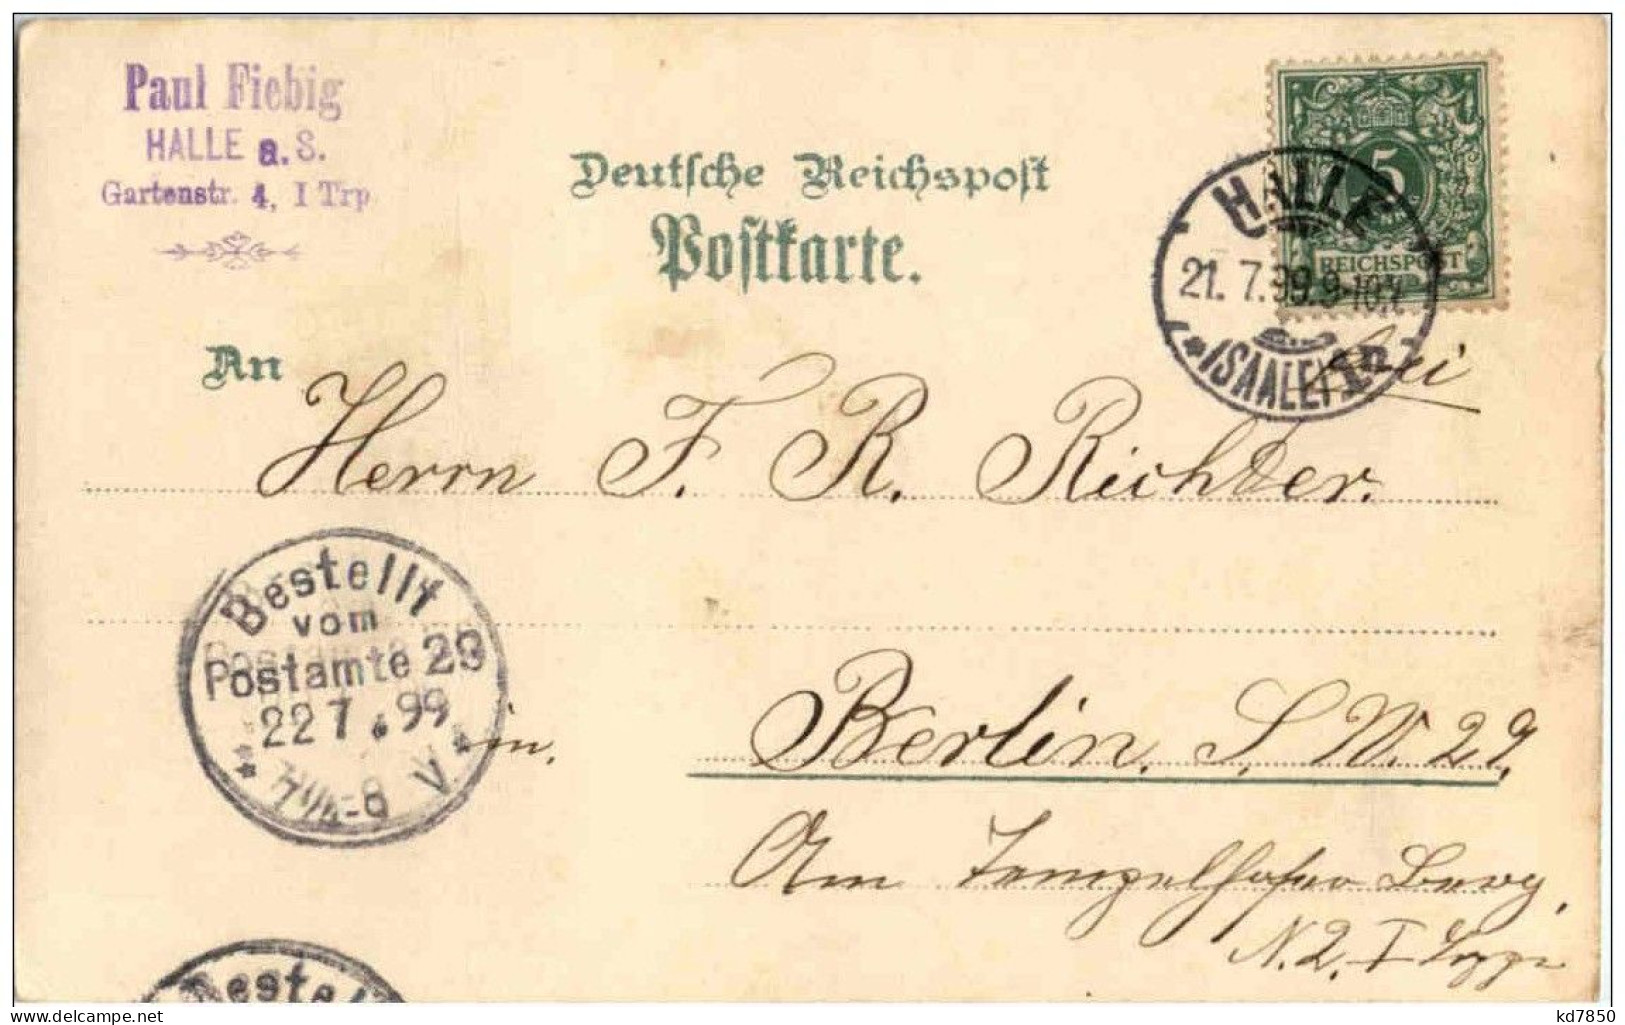 Paul Fiebig
HALLE a. S.
Gartenstr. 4, I Trp
Deutsche Reichspost
Postkarte.
5
REICHSPOST
HALLE
21. 7. 99. 9-10
(SAALE) 1
frei
An Herrn F. R. Richter.
Bestellt
vom
Postamte 29
22 7. 99
7 1/4-8 V.
in. Berlin. S. W. 29.
Am Tempelhofer Berg,
N. 2. I
Bestellt
delcampe.net
kd7850